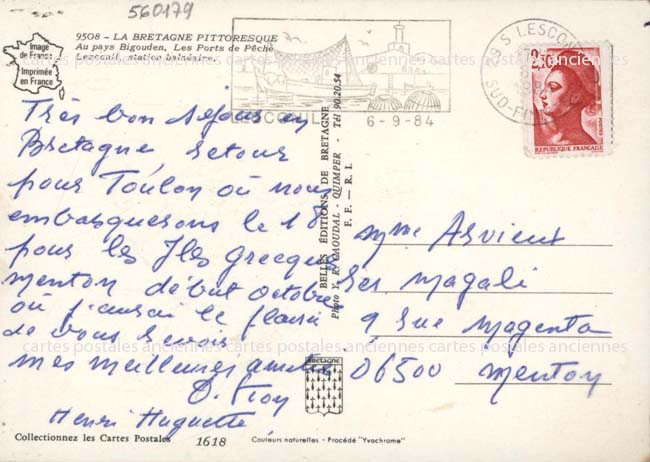 560179
9508 - LA BRETAGNE PITTORESQUE
Au pays Bigouden. Les Ports de Pêche
Lesconil, station balnéaire.
Image
de France
Imprimée
en France
LESCONIL
6-9-84
29 S LESCONIL
SUD-FIN
REPUBLIQUE FRANÇAISE
Très bon séjour en
Bretagne, retour
pour Toulon où nous
embarquerons le 18
pour les Iles Grecques
Menton début octobre
où j'aurai le plaisir
de vous revoir
mes meilleures amitiés
Henri Huguette
BELLES ÉDITIONS DE BRETAGNE
Photo Y. R. CAOUDAL - QUIMPER - Tél 90.20.54
F. F. - R. I.
Mme Arvieut
Magali
9 rue Magenta
06500 Menton
BRETAGNE
cartes postales anciennes cartes postales anciennes cartes postales anciennes cartes postales anciennes
Collectionnez les Cartes Postales
1618
Couleurs naturelles - Procédé "Yvochrome"